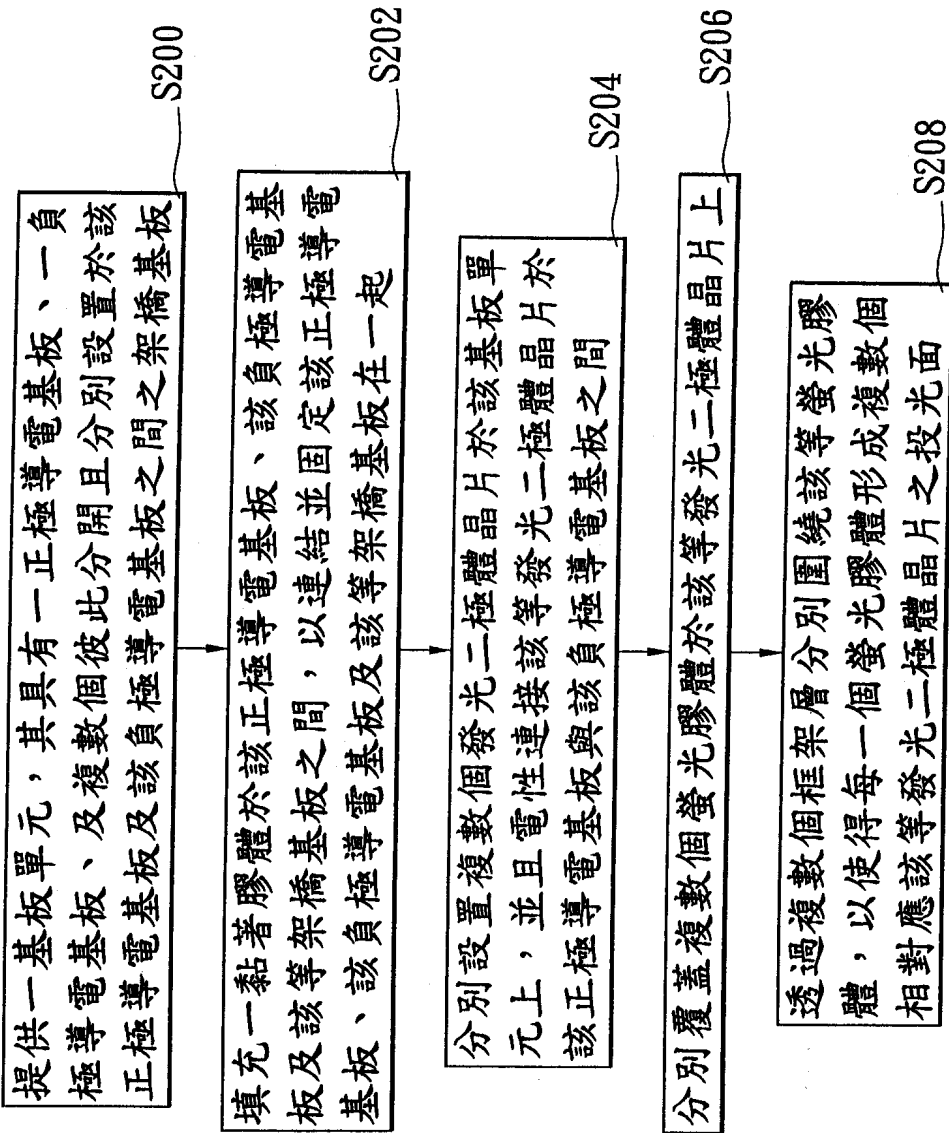 提供一基板單元，其具有一正極導電基板、一負
極導電基板、及複數個彼此分開且分別設置於該
正極導電基板及該負極導電基板之間之架橋基板
S200
填充一黏著膠體於該正極導電基板、該負極導電基
板及該等架橋基板之間，以連結並固定該正極導電
基板、該負極導電基板及該等架橋基板在一起
S202
分別設置複數個發光二極體晶片於該基板單
元上，並且電性連接該等發光二極體晶片於
該正極導電基板與該負極導電基板之間
S204
分別覆蓋複數個螢光膠體於該等發光二極體晶片上
S206
透過複數個框架層分別圍繞該等螢光膠
體，以使得每一個螢光膠體形成複數個
相對應該等發光二極體晶片之投光面
S208